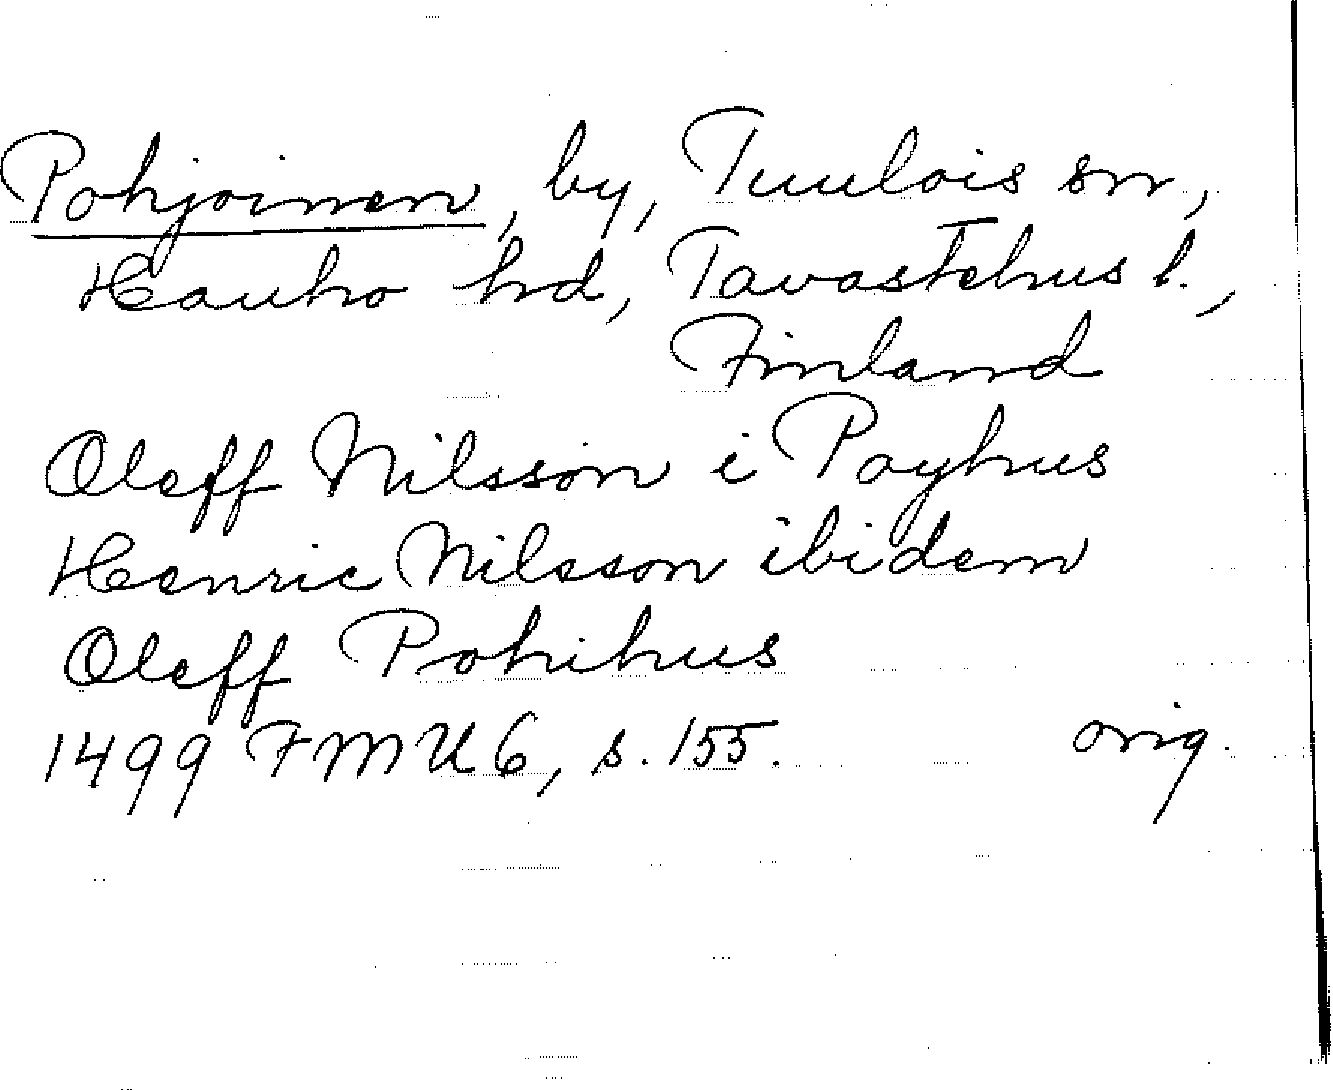 Pohjoinen, by, Tuulois sn,
Hauho hd, Tavastehus l.,
Finland
Oleff Nilsson i Poyhus
Henric Nilsson ibidem
Oleff Pohihus
1499 FMU 6, s. 155. orig.